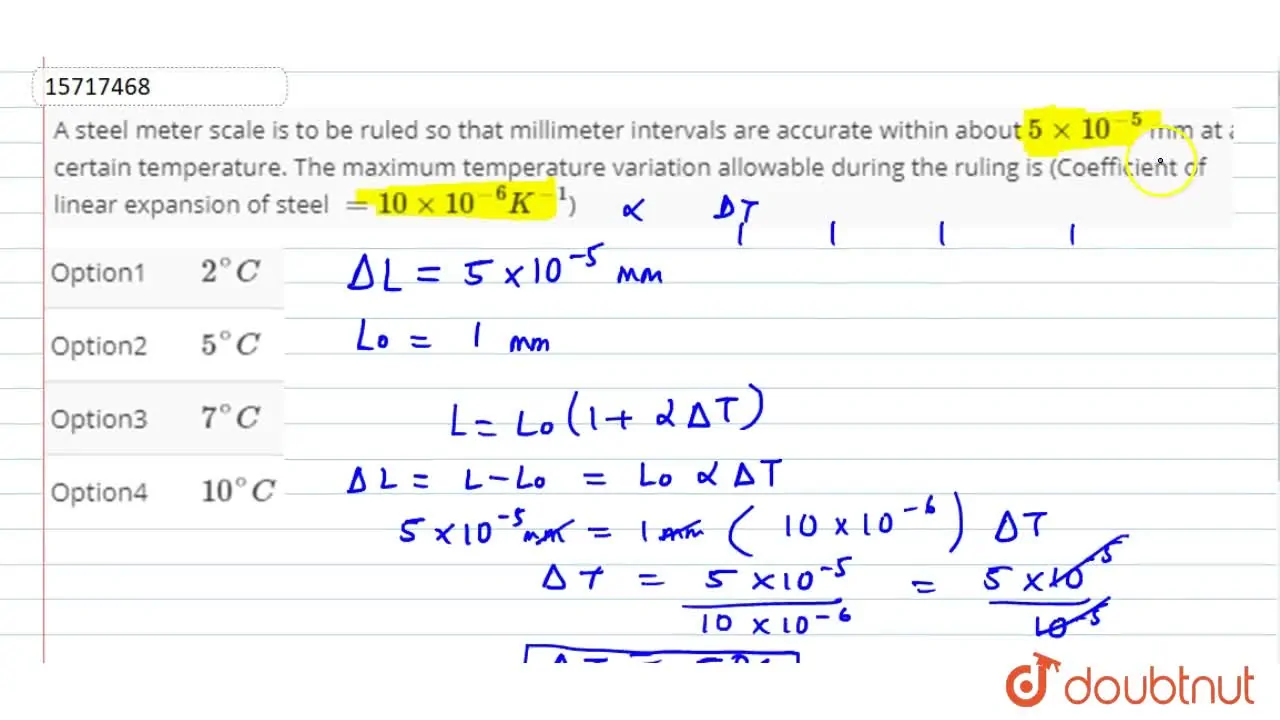 15717468
A steel meter scale is to be ruled so that millimeter intervals are accurate within about 5 × 10⁻⁵ mm at a
certain temperature. The maximum temperature variation allowable during the ruling is (Coefficient of
linear expansion of steel = 10 × 10⁻⁶ K⁻¹)
α ΔT
Option1 2°C
Option2 5°C
Option3 7°C
Option4 10°C
ΔL = 5 × 10⁻⁵ mm
L₀ = 1 mm
L = L₀ (1 + αΔT)
ΔL = L – L₀ = L₀ α ΔT
5 × 10⁻⁵ mm = 1 mm ( 10 × 10⁻⁶ ) ΔT
ΔT = 5 × 10⁻⁵ / 10 × 10⁻⁶ = 5 × 10⁻⁵ / 10⁻⁵
doubtnut